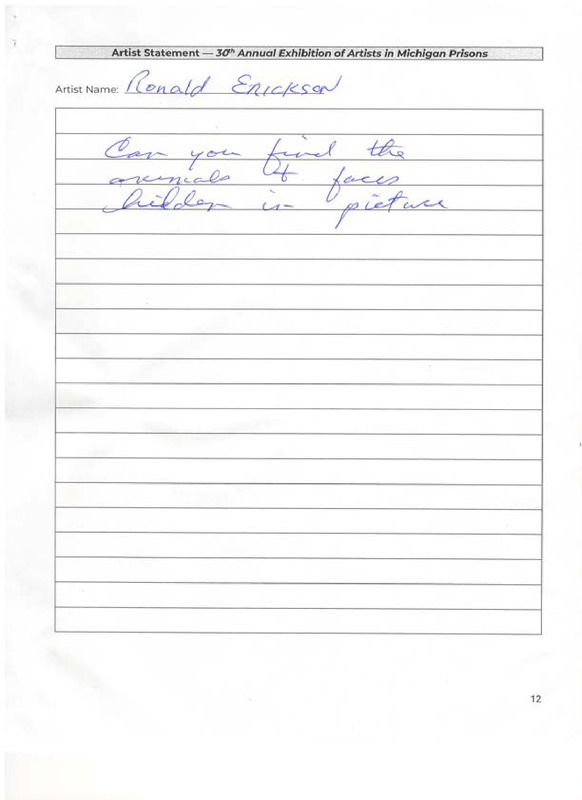 Artist Statement — 30th Annual Exhibition of Artists in Michigan Prisons
Artist Name: Ronald Erickson
Can you find the
animals & faces
hidden in picture
12